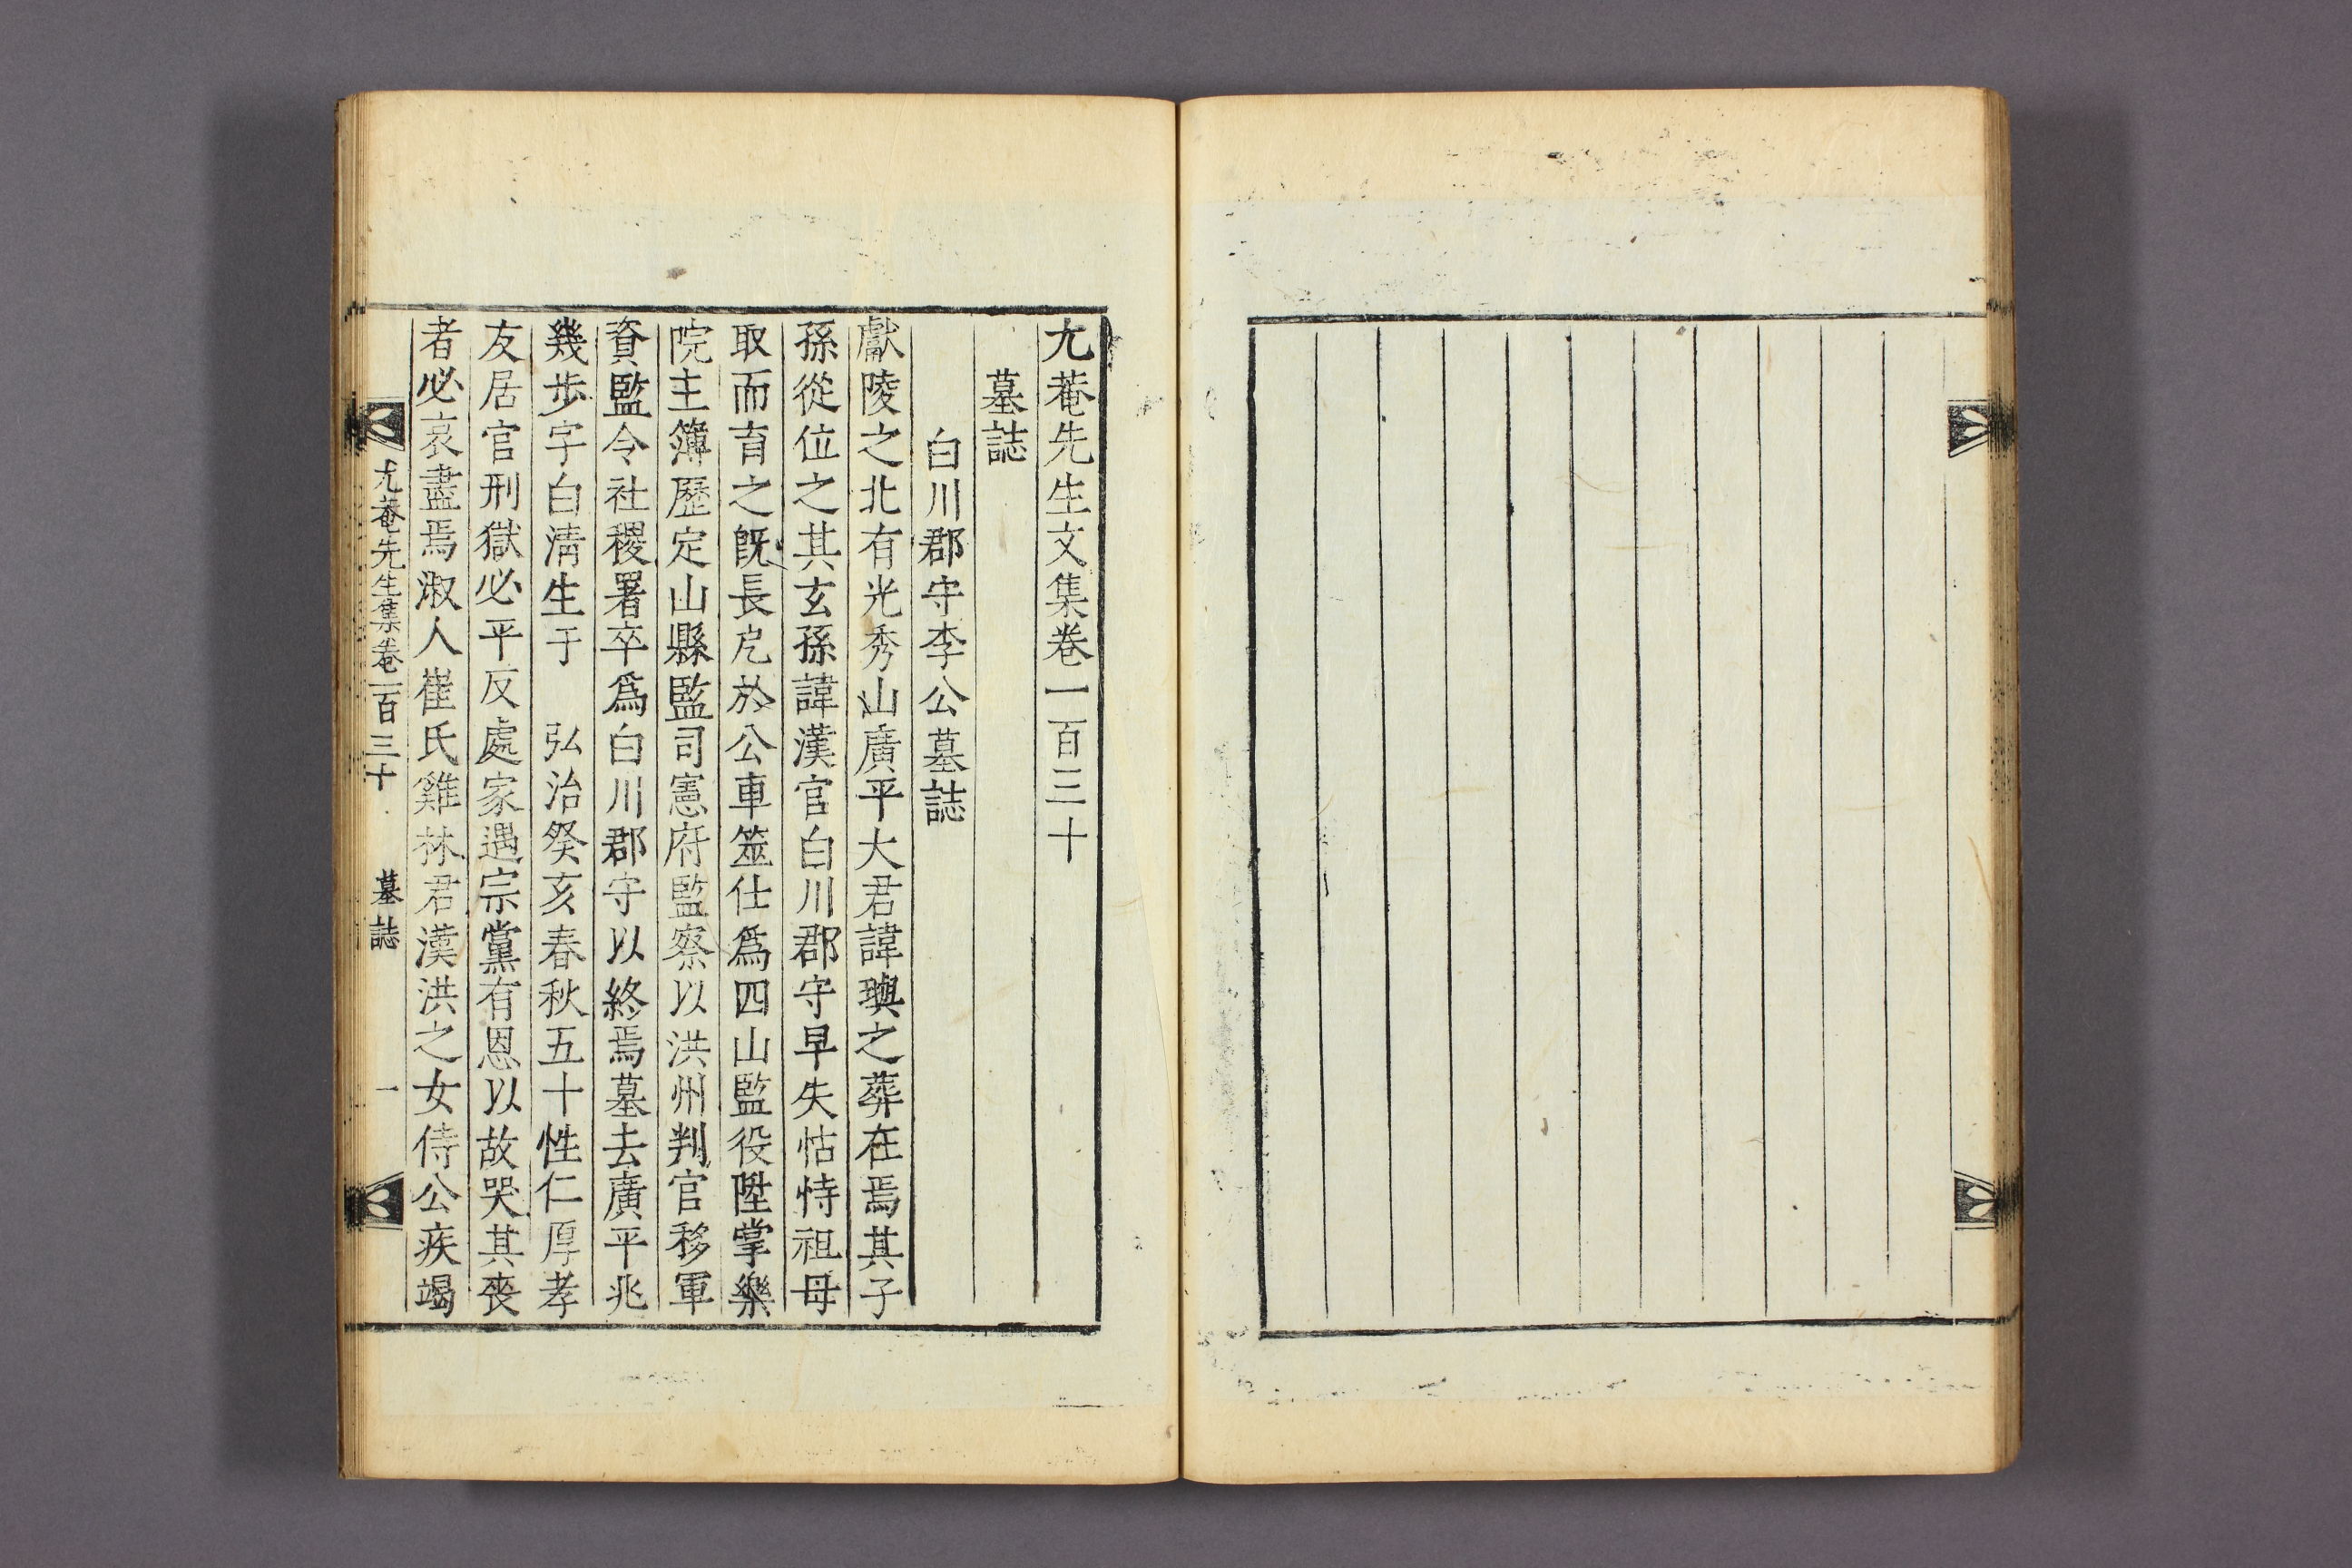 尤菴先生文集卷一百三十
墓誌
白川郡守李公墓誌
獻陵之北有光秀山廣平大君諱璵之葬在焉其子
孫從位之其玄孫諱漢官白川郡守早失怙恃祖母
取而育之旣長屈於公車筮仕爲四山監役陞掌樂
院主簿歷定山縣監司憲府監察以洪州判官移軍
資監令社稷署卒爲白川郡守以終焉墓去廣平兆
幾步字白淸生于 弘治癸亥春秋五十性仁厚孝
友居官刑獄必平反處家遇宗黨有恩以故哭其喪
者必哀盡焉淑人崔氏雞林君漢洪之女侍公疾竭
尤菴先生集卷一百三十 墓誌 一